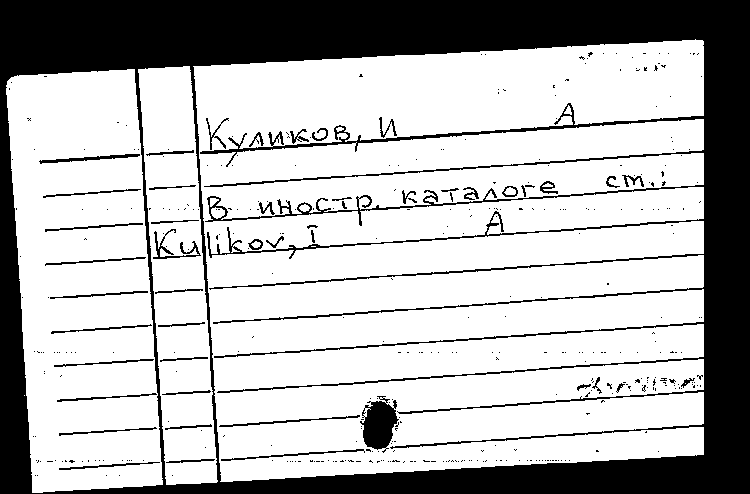 Куликов, И А
В иностр. каталоге ст.:
Kulikov, I А